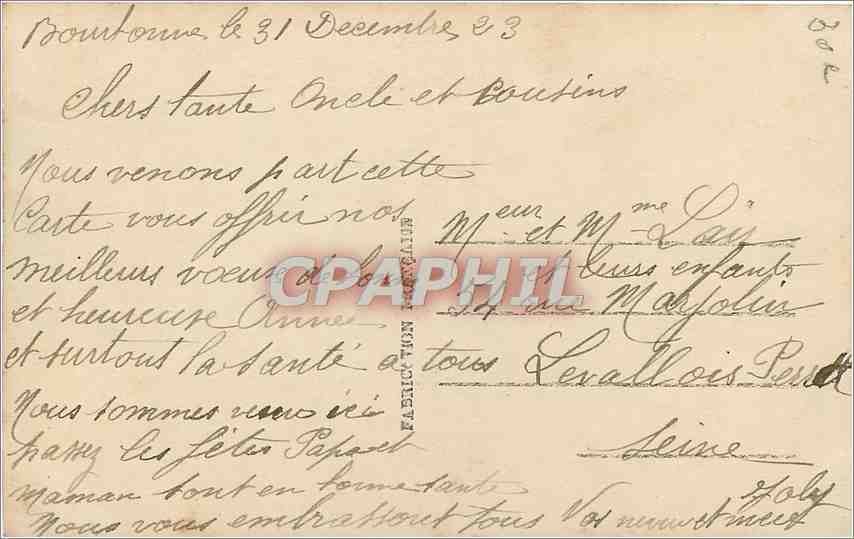 Bourbonne le 31 Decembre 23
Chers tante Oncle et Cousins
Nous venons part cette
Carte vous offrir nos
meilleurs vœux de bonne
et heureuse Année
et surtout la santé a tous
Nous sommes venu ici
passez les fêtes Papa et
maman sont en bonne santé
Nous vous embrassont tous Vos neveu et niece
Joly
Meur et Mme Laÿ
et leurs enfants
54 rue Marjolin
Levallois-Perret
Seine
FABRICATION FRANÇAISE
CPAPHIL